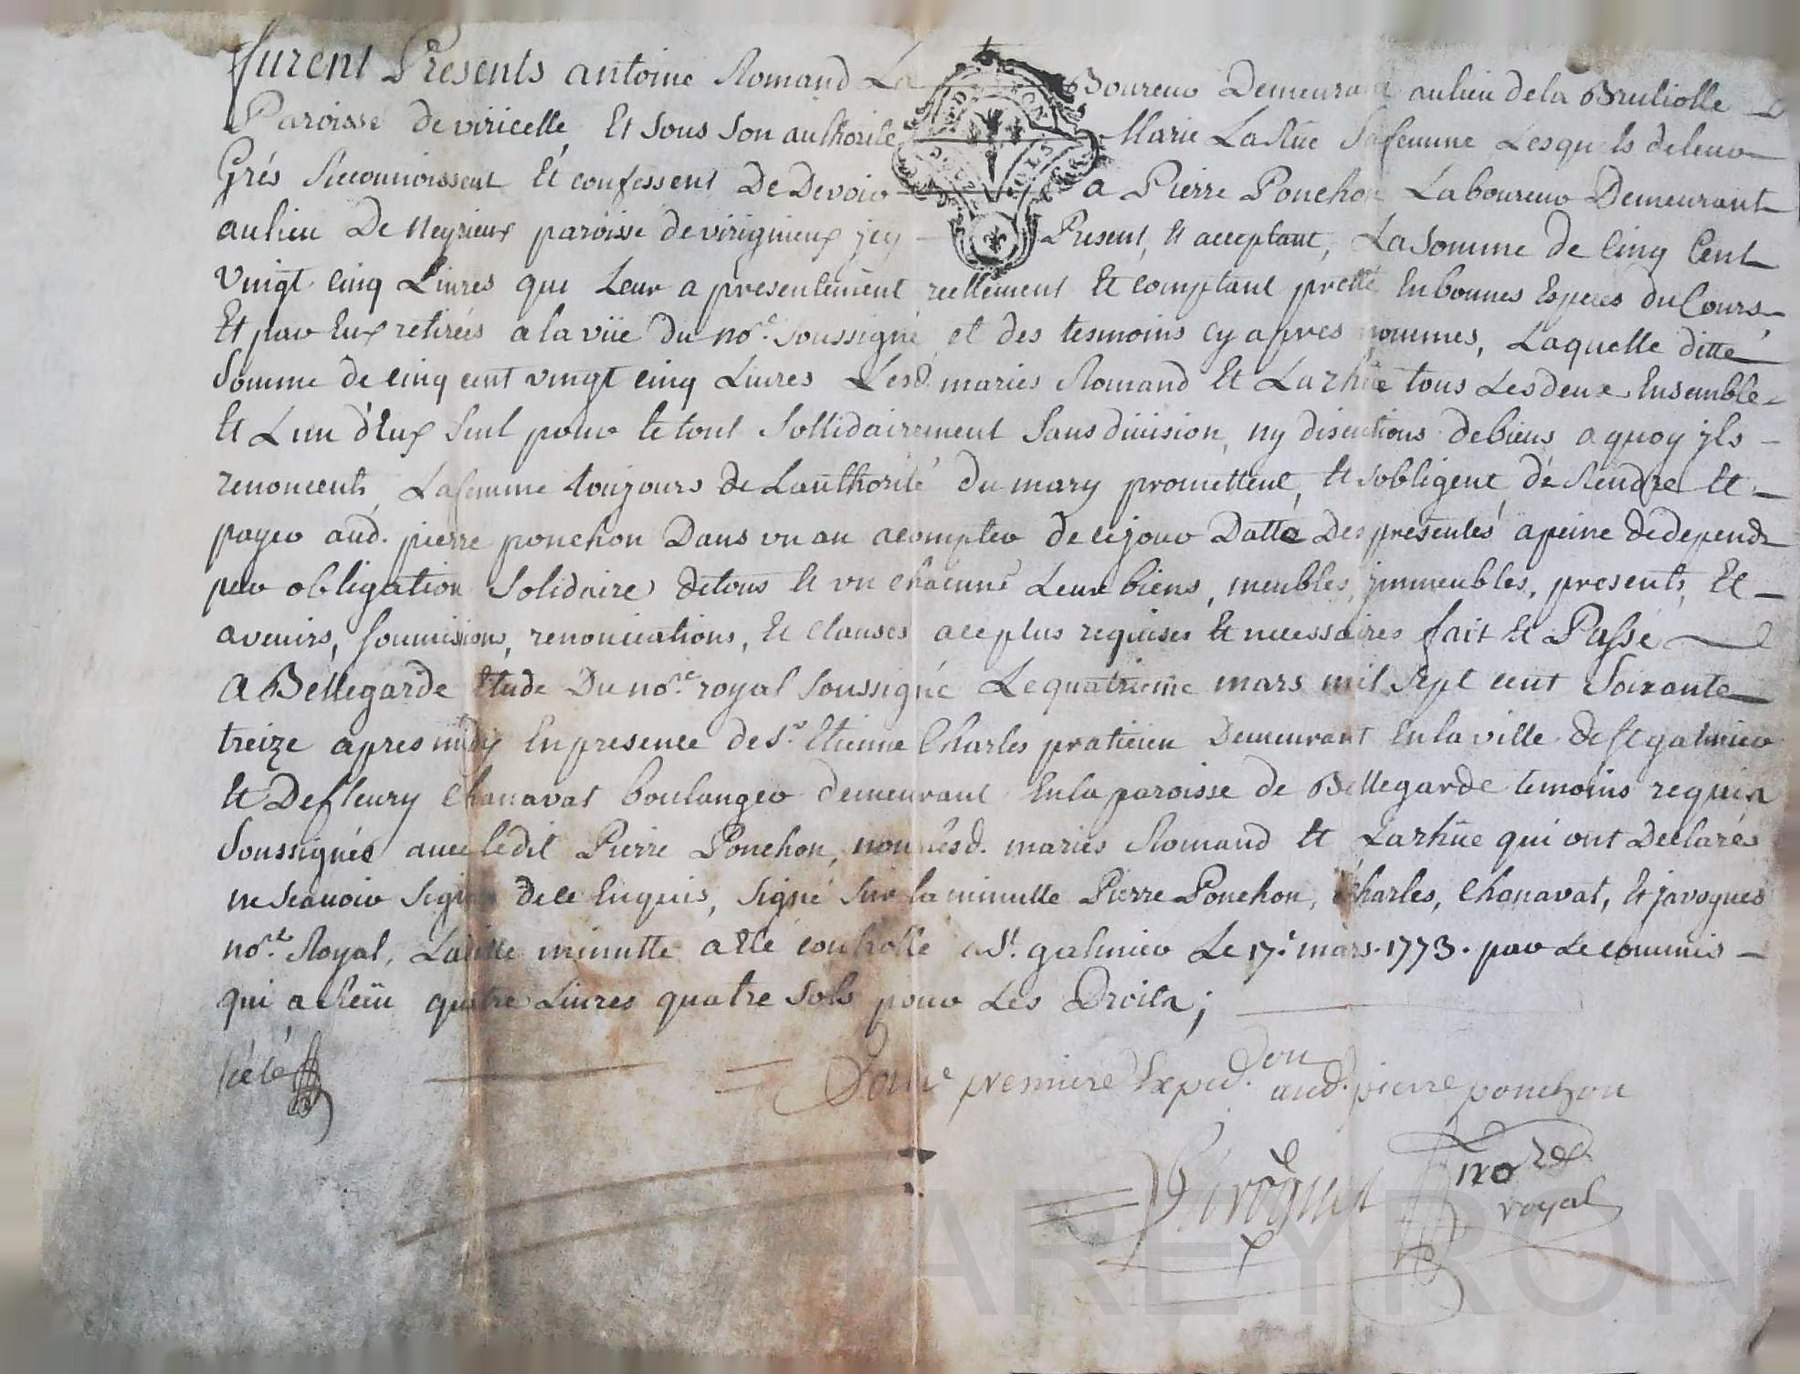 furent Presents antoine Romand Laboureur Demeurant au lieu de la Bruliolle
Paroisse de viricelle, Et sous son authorité Marie La Rüe sa femme Lesquels de leur
Grés Reconnoissent Et confessent De Devoir a Pierre Ponchon Laboureur Demeurant
au lieu De Neyrieux paroisse de virigneux jcy Present, et acceptant, La somme de Cinq Cent
vingt cinq Livres que Leur a presentement reellement Et comptant pretté En bonnes Especes du Cours
Et par Eux retirées a la vüe du nore. soussigné et des tesmoins cy apres nommes, Laquelle ditte
somme de cinq cent vingt cinq Livres Lesd. mariés Romand Et Larhüe tous Les deux Ensemble
Et L'un d'Eux seul pour le tout sollidairement sans division, ny discutions de biens a quoy jls
renoncent, La femme toujours de L'authorité du mary promettent, Et s'obligent, de Rendre Et
payer aud. pierre ponchon Dans un an a compter de ce jour Datte Des presentes a peine de depends
par obligation Solidaire de tous et un chacuns Leur biens, meubles, jmmeubles, presents, Et
avenirs, soumissions, renonciations, Et clauses a ce plus requises Et necessaires fait Et Passé
A Bellegarde Etude Du nore. royal soussigné Le quatrieme mars mil sept cent soixante
treize apres midy En presence de Sr. Etienne Charles praticien Demeurant En la ville de St galmier
Et De fleury Chanavat boulanger demeurant En la paroisse de Bellegarde temoins requis
soussignés avec ledit Pierre Ponchon, non lesd. mariés Romand Et Larhüe qui ont Declarés
ne scavoir signer de ce Enquis, signé sur la minutte Pierre Ponchon, Charles, Chanavat, Et javogues
nore. Royal, Laditte minutte a Eté controllé a St. galmier Le 17e. mars. 1773. par Le commis
qui a Reçu quatre Livres quatre sols pour Les Droits;
scélé
Pour premiere Exped.on aud. pierre ponchon
Javogues nore
royal
CHAREYRON